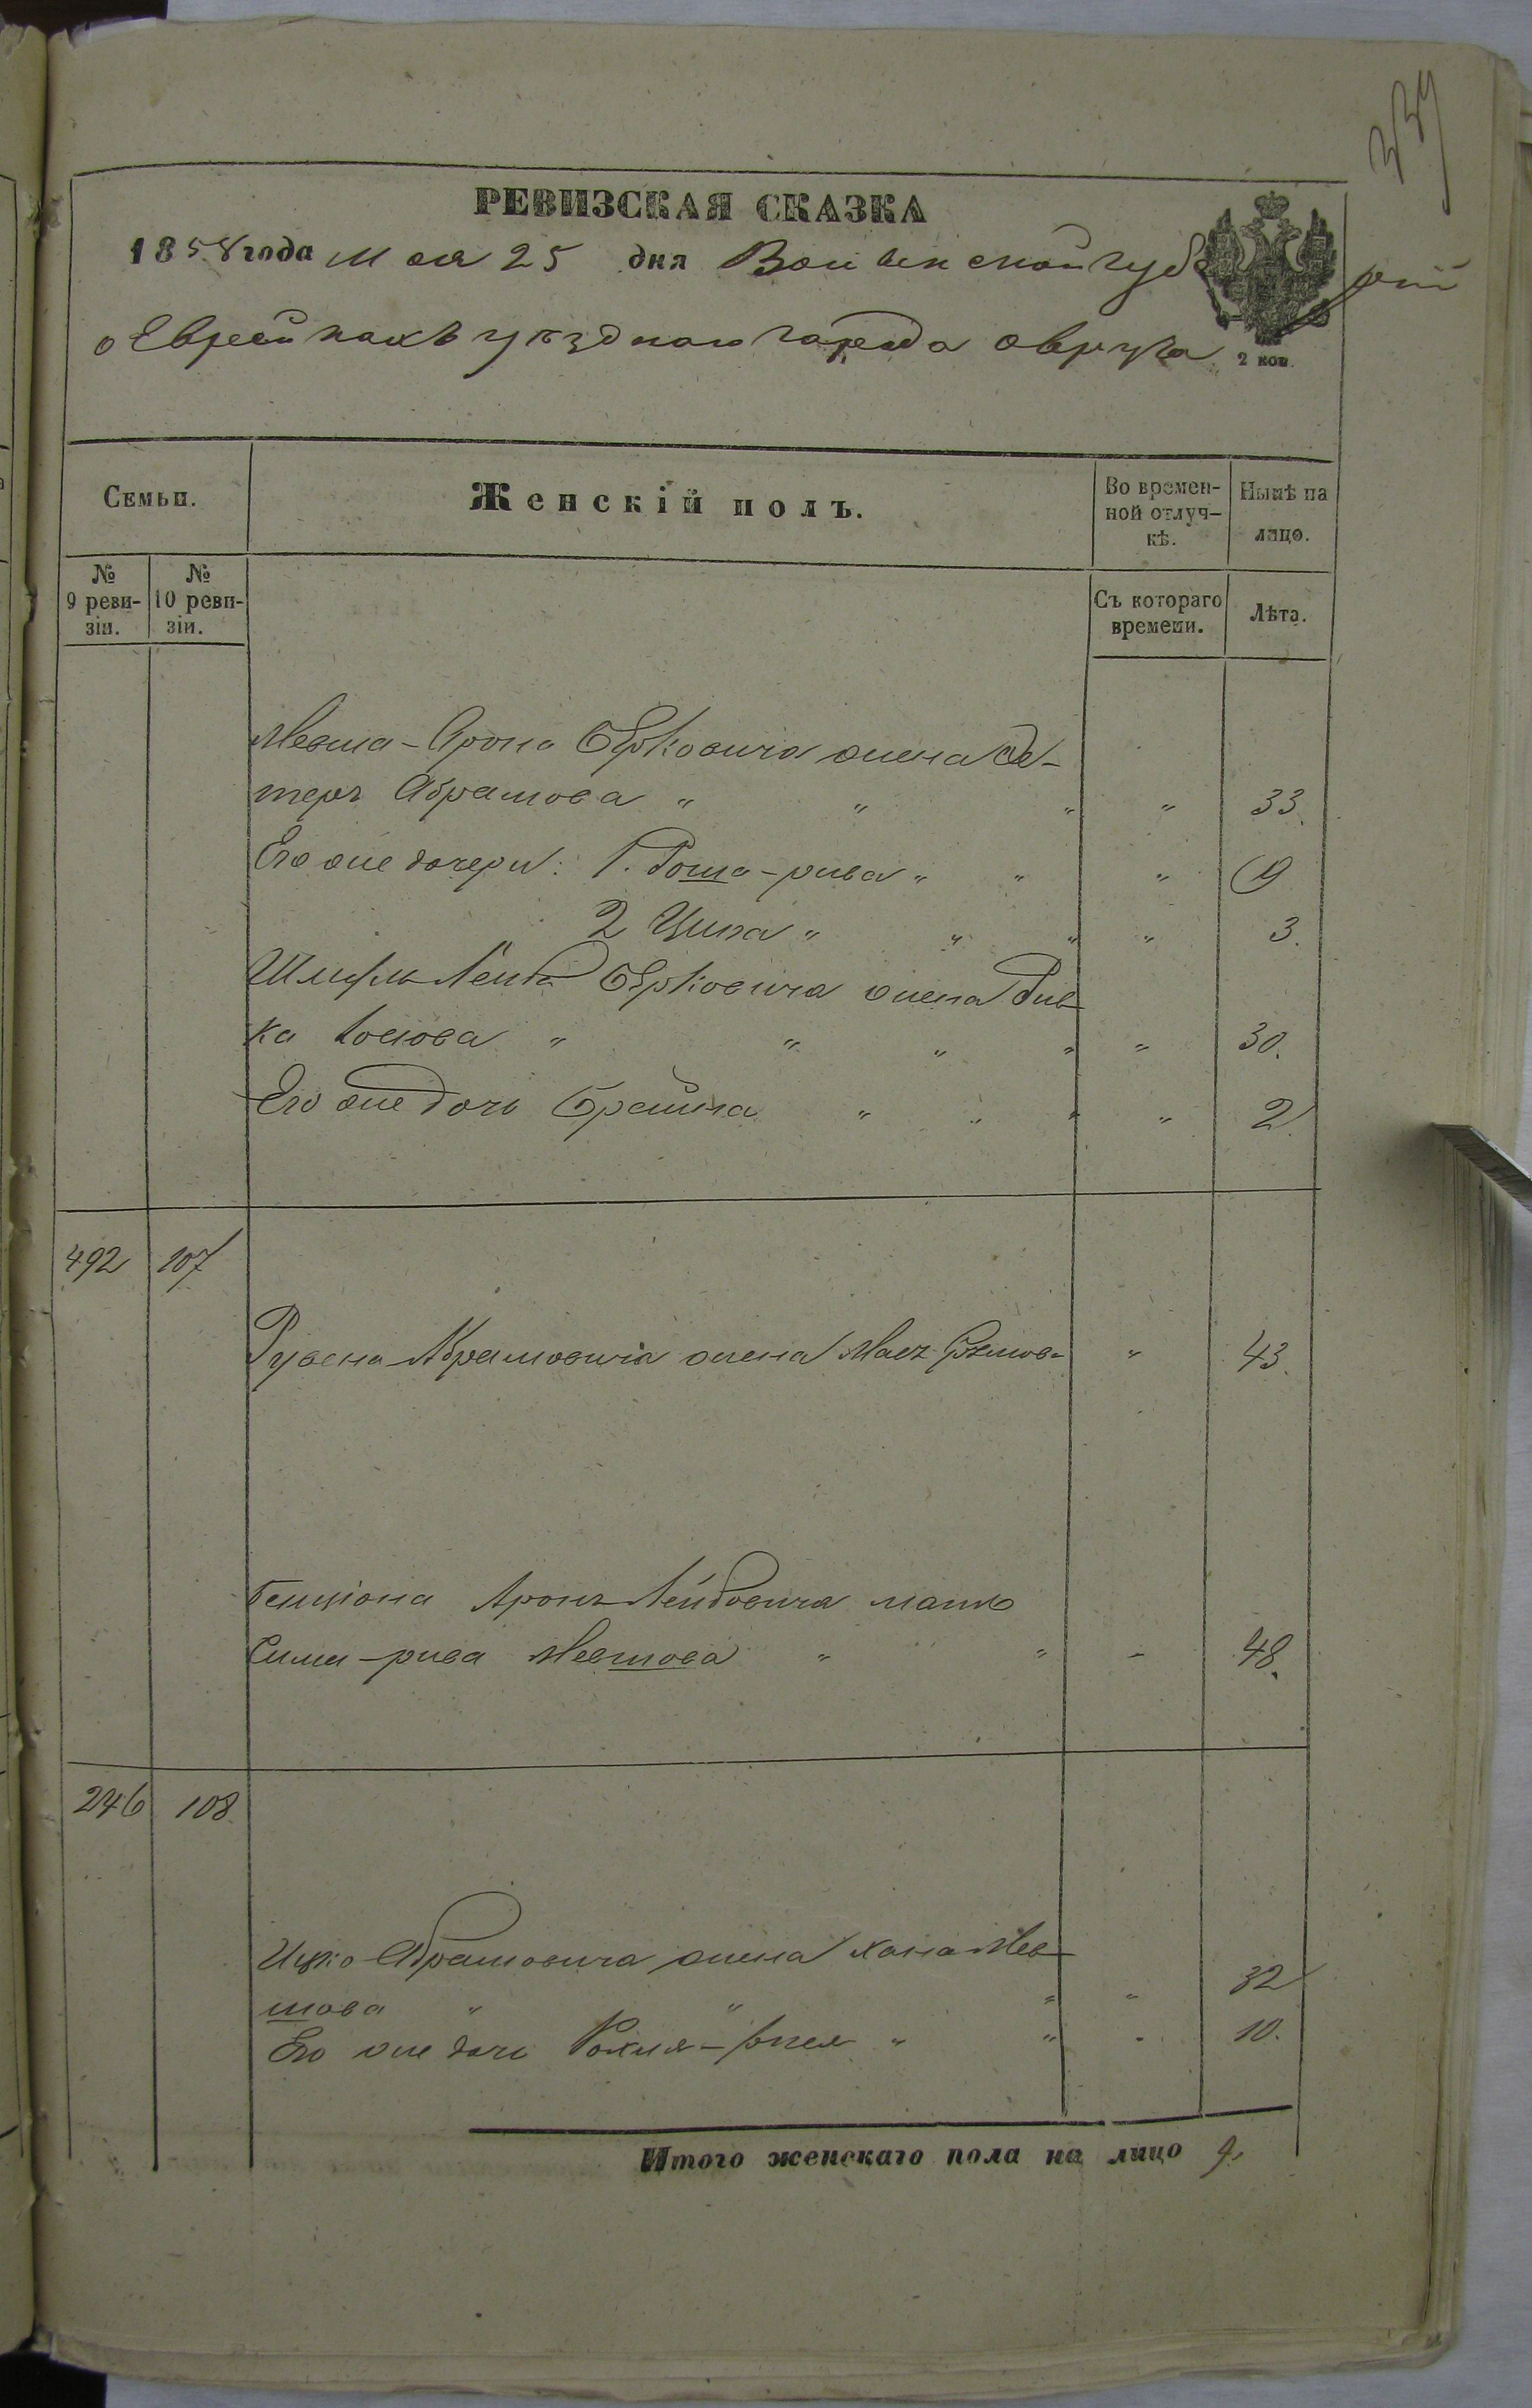 339
РЕВИЗСКАЯ СКАЗКА
1858 года Мая 25 дня Волынской губернiи
о Еврейкахъ уѣзднаго города Овруча
2 коп.
Семьи.
Женскій полъ.
Во времен-
ной отлуч-
кѣ.
Нынѣ на
лицо.
№
9 реви-
зіи.
№
10 реви-
зіи.
Съ котораго
времени.
Лѣта.
Мевша-Арона Берковича жена Эс-
теръ Абрамова " " " " 33.
Его же дочери: 1. Роша-рива " " " 9
2 Ципа " " " " 3.
Берковича жена Рив-
ка " " " " " 30.
Его же дочь Брайна " " " " 2.
492 107
Рувена Абрамовича жена " 43.
Бенціона Аронъ-Лейбовича мать
Сима-рива Мевшова " " - 48.
246 108.
Ицко Абрамовича жена Хана Мев-
шова " " " " 32
Его же дочь " " " 10.
Итого женскаго пола на лицо 9.